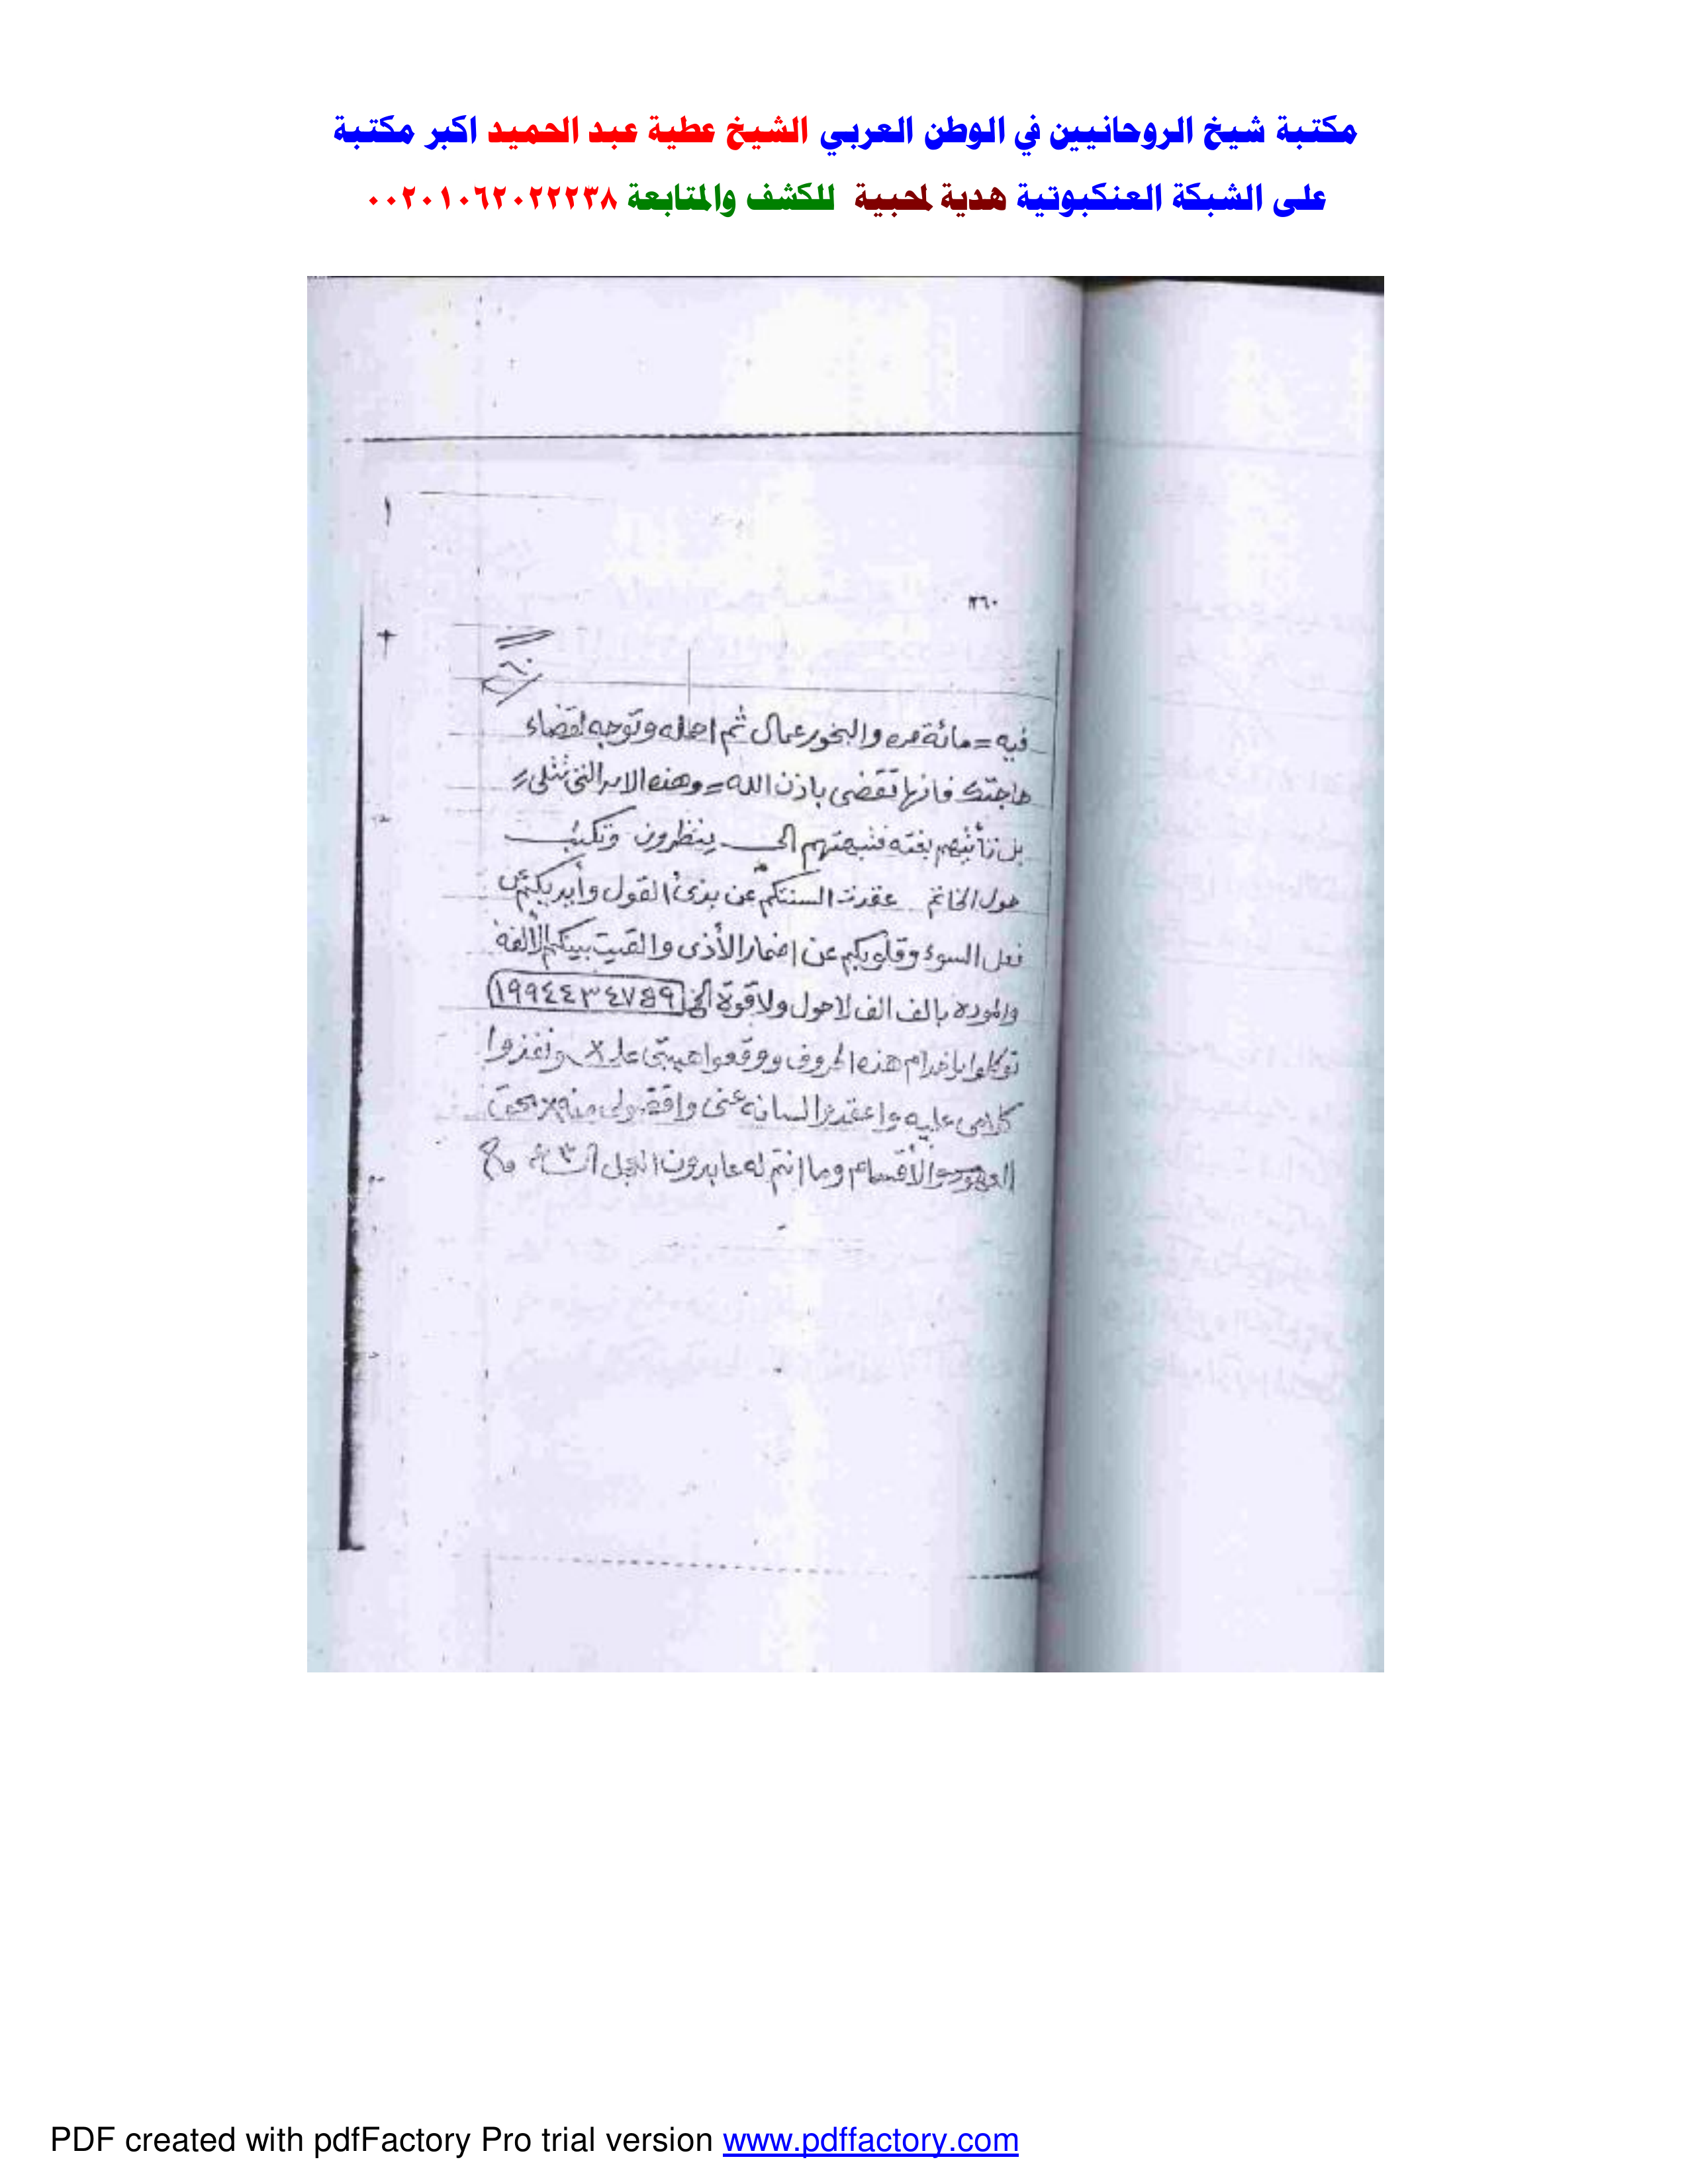 مكتبة شيخ الروحانيين في الوطن العربي الشيخ عطية عبد الحميد اكبر مكتبة
على الشبكة العنكبوتية هدية لمحبية للكشف والمتابعة ٠٠٢٠١٠٦٢٠٢٢٢٣٨
٢٦٠
٦٠
فيه = مائة مره والبخور عمال ثم احمله وتوجه لقضاء
حاجتك فانها تقضى باذن الله = وهذه الايه التى تتلى =
بل تأتيهم بغته فتبهتهم الى ينظرون وتكتب
حول الخاتم عقدت السنتكم عن بذئ القول وأيديكم عن
فعل السوء وقلوبكم عن اضمار الأذى والقيت بينكم الألفة
والموده بالف الف لاحول ولاقوة الخ ١٩٩٤٤٣٤٧٤٩
توكلوا ياخدام هذه الحروف ووقعوا هيبتى على × ونفذوا
كلامى عليه واعقدوا لسانه عنى منه × بحق
العهود والأقسام وما انتم له عابدون العجل
PDF created with pdfFactory Pro trial version www.pdffactory.com